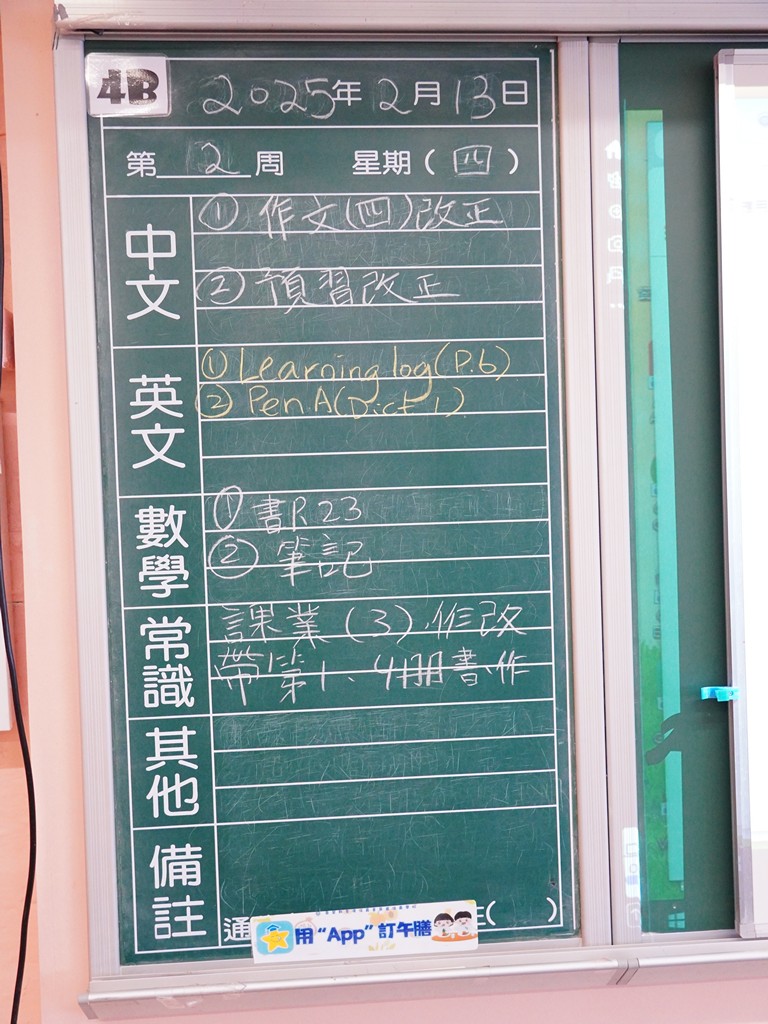 4B
2025年2月13日
第2周 星期(四)
中文
① 作文(四)改正
② 預習改正
英文
① Learning log(P.6)
② Pen A(Dict 1)
數學
① 書P.23
② 筆記
常識
課業(3)作改
帶第1、4冊書、作
其他
備註
通
用“App”訂午膳
(   )